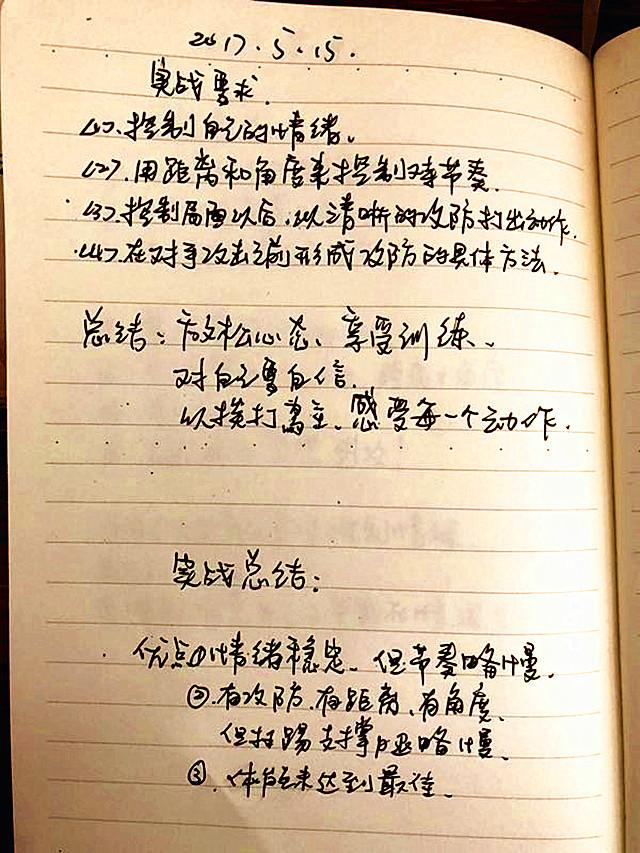 2017.5.15.
实战要求.
<1>、控制自己的情绪。
<2>、用距离和角度来控制对手节奏.
<3>、控制局面以后、以清晰的攻防打出动作.
<4>、在对手攻击之前形成攻防的具体方法.
总结：放松心态、享受训练、
对自己要自信.
以挨打为主、感受每一个动作.
实战总结：
优点①情绪稳定、但节奏略慢.
②、有攻防、有距离、有角度、
但扫踢支撑腿略慢.
③、体能未达到最佳.